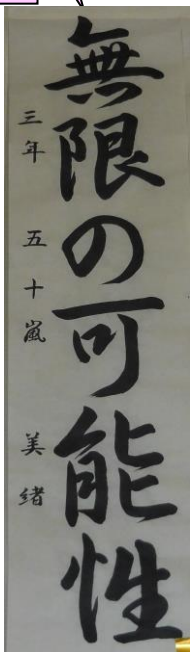 無限の可能性
三年 五十嵐 美緒